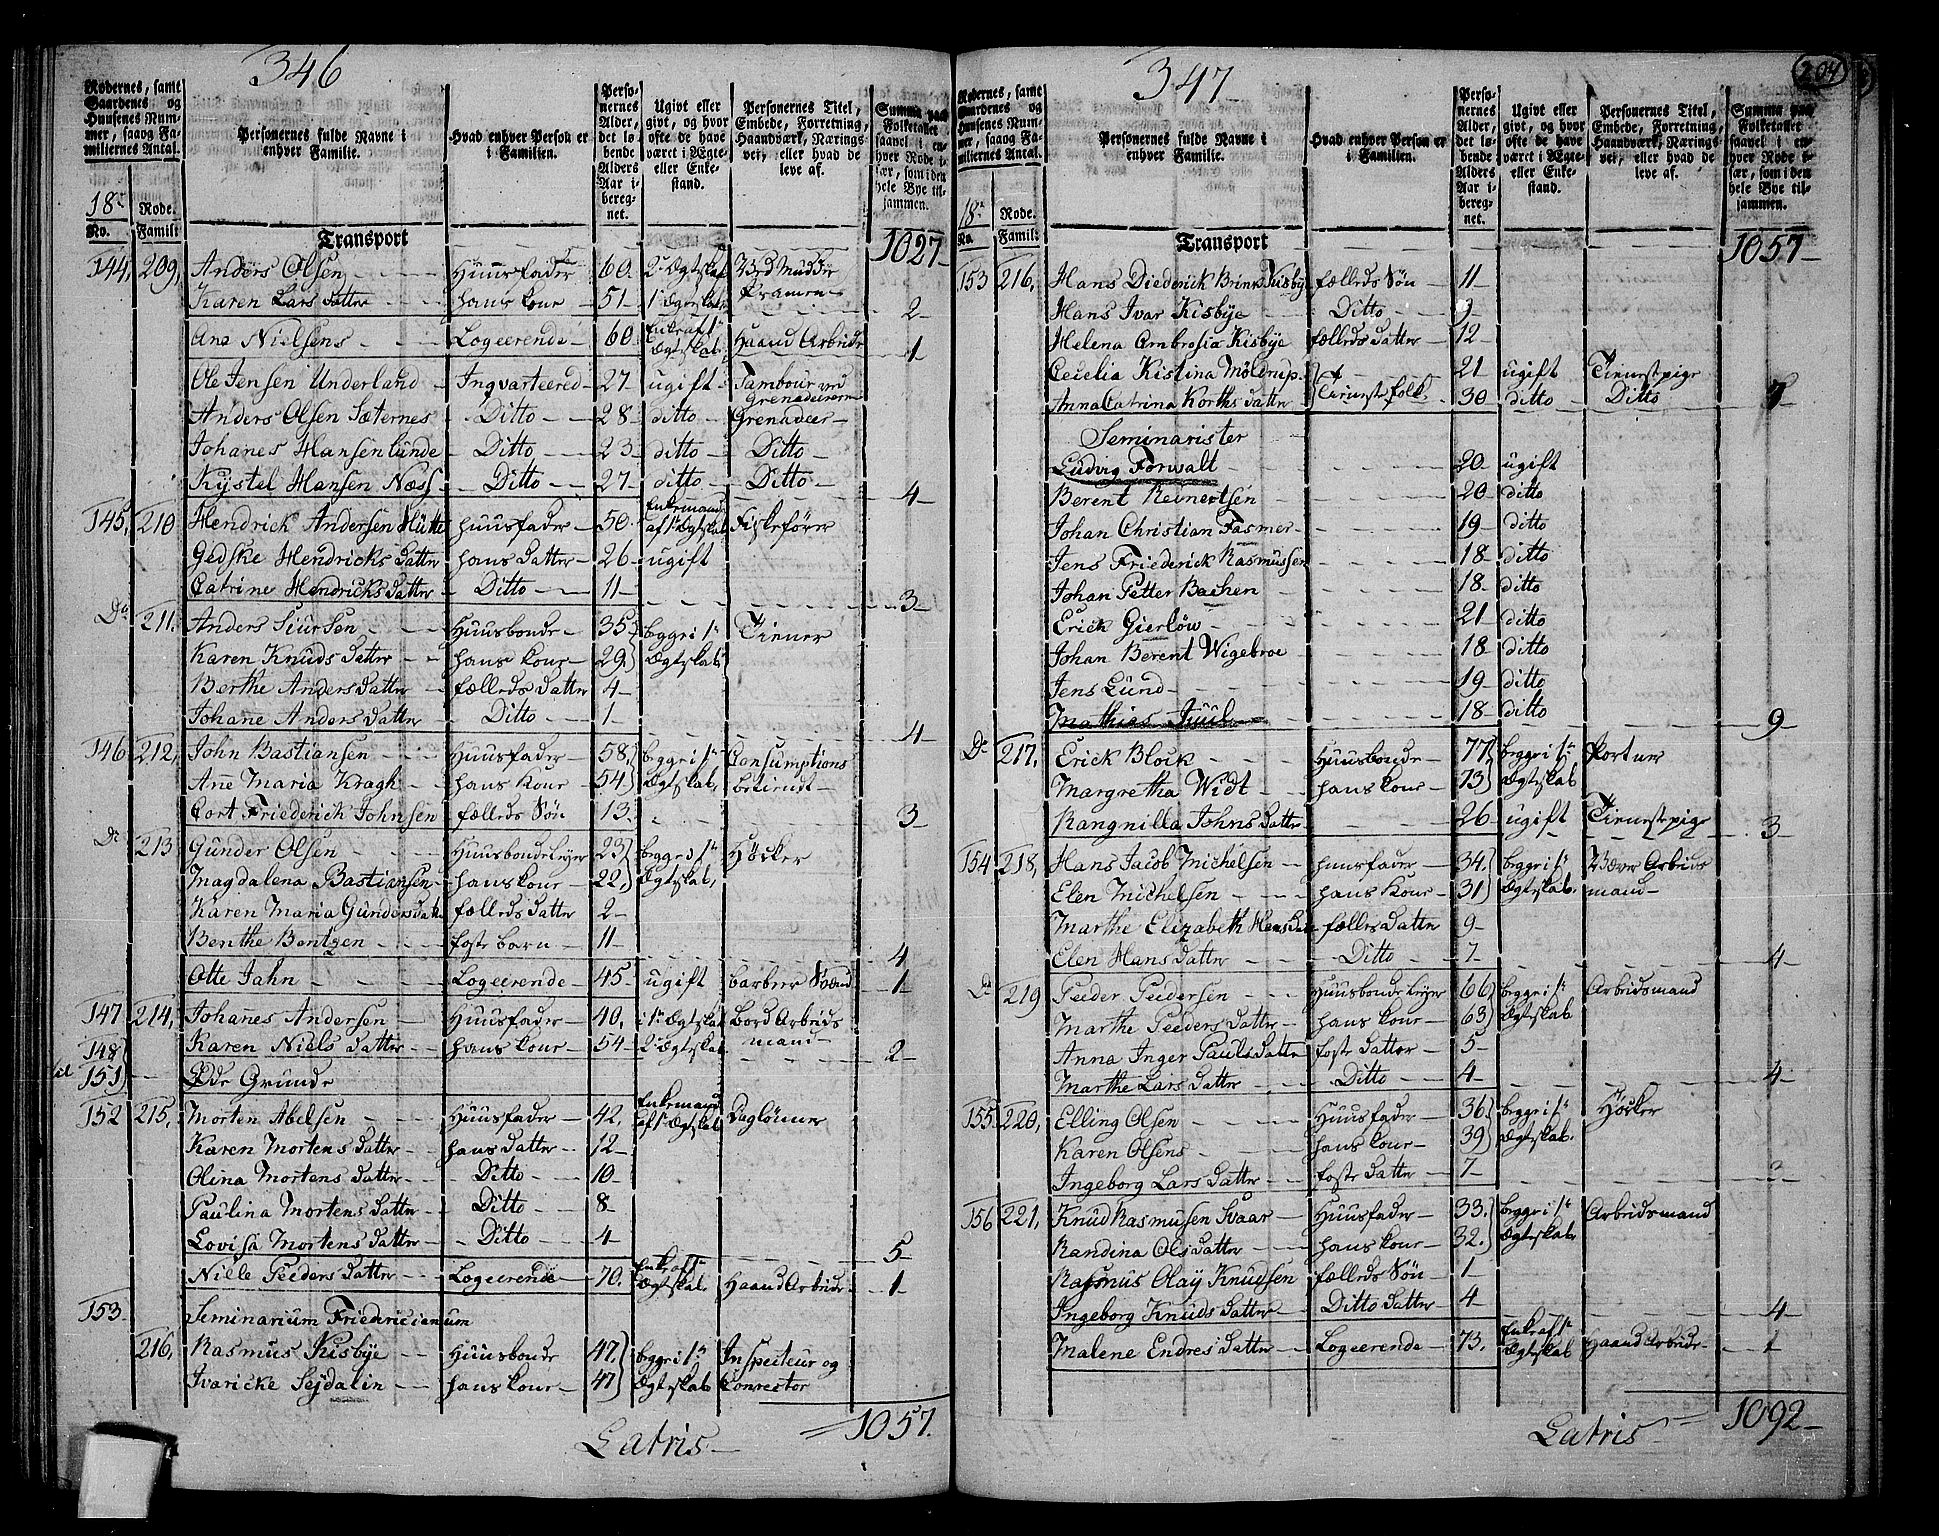 346
Rodernes, samt Gaardenes og Huusenes Nummer, saaog Familiernes Antal.
Personernes fulde Navne i enhver Familie.
Hvad enhver Person er i Familien.
Personernes Alder, det løbende Alders Aar iberegnet.
Ugivt eller givt, og hvor ofte de have været i Ægte- eller Enkestand.
Personernes Titel, Embede, Forretning, Haandværk, Næringsvei, eller hvad de leve af.
Summa paa Folketallet saavel i enhver Rode især, som i den hele Bye tilsammen.
18de Rode.
No. Famili
Transport 1027
144, 209, Anders Olsen Huusfader 60. 2de Ægtskab Ved Mudder
Karen Lars datter hans kone 51 1te Ægtskab Pramen 2
Ane Nielsens Logeerende 60. Enke af 1te Ægtskab Haand Arbeide 1
Ole Jensen Underland Inqvarteered 27 ugift Tambour ved Grenadeererne
Anders Olsen Sæternes Ditto 28 ditto Grenadeer
Johanes Hansen Lunde Ditto 23 ditto Ditto
Kystel Hansen Næss Ditto 27 ditto Ditto 4
145, 210 Hendrick Andersen Hütte Huusfader 50. Enkemand af 1te Ægtskab Fiskefører
Gedske Hendricks datter hans datter 26 ugift
Catrine Hendricks datter Ditto 11 3
Do 211. Anders Siursen Huusbonde 35 begge i 1te Tiener
Karen Knuds datter hans kone 29 Ægtskab
Berthe Anders datter fælleds datter 4
Johane Anders datter Ditto 1 4
146 212, John Bastiansen Huusfader 58, begge i 1te Consumptions
Ane Maria Kragh hans Kone 54 Ægtskab, betient
Cort Friederich Johnsen fælleds Søn 13. 3
Do 213 Gunder Olsen Huusbonde Leyer 23 begge i 1te Høcker
Magdalena Bastiansen hans kone 22, Ægtskab,
Karen Maria Gunders dat fælleds datter 2
Benthe Bentzen foster barn 11 4
Otte Jahn Logeerende 45 ugift barbeer Svend 1
147 214, Johanes Andersen Huusfader 40, i 1te Ægtskab Bord Arbeids
Karen Niels datter hans kone 54 2de Ægtskab. mand 2
148
til 151 Øde Grunde
152 215, Morten Abelsen Huusfader 42, Enkemand af 1te Ægtskab Daglönner
Karen Mortens datter hans datter 12
Olina Mortens datter Ditto 10
Paulina Mortens datter Ditto 8
Lovisa Mortens datter Ditto 4 5
Niele Peeders datter Logeerende 70. Enke af 1te Ægtskab Haand Arbeide 1
153 Seminarium Friedericianum
216, Rasmus Kisbye Huusbonde 47, begge i 1te Inspecteur og
Ivaricke Sejdalin hans kone 47 Ægtskab Conrector
Latris 1057.
347
204
Rodernes, samt Gaardenes og Huusenes Nummer, saaog Familiernes Antal.
Personernes fulde Navne i enhver Familie.
Hvad enhver Person er i Familien.
Personernes Alder, det løbende Alders Aar iberegnet.
Ugivt eller givt, og hvor ofte de have været i Ægte- eller Enkestand.
Personernes Titel, Embede, Forretning, Haandværk, Næringsvei, eller hvad de leve af.
Summa paa Folketallet saavel i enhver Rode især, som i den hele Bye tilsammen.
18de Rode.
No. Famili
Transport 1057
153 216, Hans Diederick Brink Kisby fælleds Søn 11
Hans Ivar Kisbye Ditto 9
Helena Ambrosia Kisbye fælleds datter 12
Cecelia Kistina Möldrup 21 ugift Tienestpige
Anna Catrina Korths datter Tienestfolk 30 ditto Ditto 7
Seminarister
Ludvig Forwalt 20 ugift
Berent Reinertsen 20 ditto
Johan Christian Fasmer 19 ditto
Jens Friederick Rasmussen 18 ditto
Johan Petter Bachen 18 ditto
Erick Gierlöw 21 ditto
Johan Berent Wigebroe 18 ditto
Jens Lund 19 ditto
Mathias Juul 18 ditto 9
Do 217, Erick Block Huusbonde 77, begge i 1te Portner
Margretha Widt hans kone 73 Ægtskab
Rangnilla Johns datter 26 ugift Tienestpige 3
154 218, Hans Jacob Michelsen Huusfader 34, begge i 1te Arbeids
Elen Michelsen hans Kone 31 Ægtskab. mand
Marthe Elizabeth Hans dat fælles datter 9
Elen Hans datter Ditto 7 4
Do 219 Peder Pedersen Huusbonde Leyer 66 begge i 1te Arbeidsmand
Marthe Peeders datter hans kone 63 Ægtskab
Anna Inger Pauls datter foster datter 5
Marthe Lars datter Ditto 4 4
155 220, Elling Olsen Huusfader 36. begge i 1te Höcker
Karen Olsens hans kone 39 Ægtskab.
Ingeborg Lars datter foster datter 7 3
156 221, Knud Rasmusen Svaar Huusfader 33. begge i 1te Arbeidsmand
Randina Ols datter hans kone 32. Ægtskab
Rasmus Olay Knudsen fælleds Søn 1
Ingeborg Knuds datter Ditto datter 4 4
Malene Endres datter Logeerende 73. Enke af 1te Ægtskab Haand Arbeide 1
Latris 1092